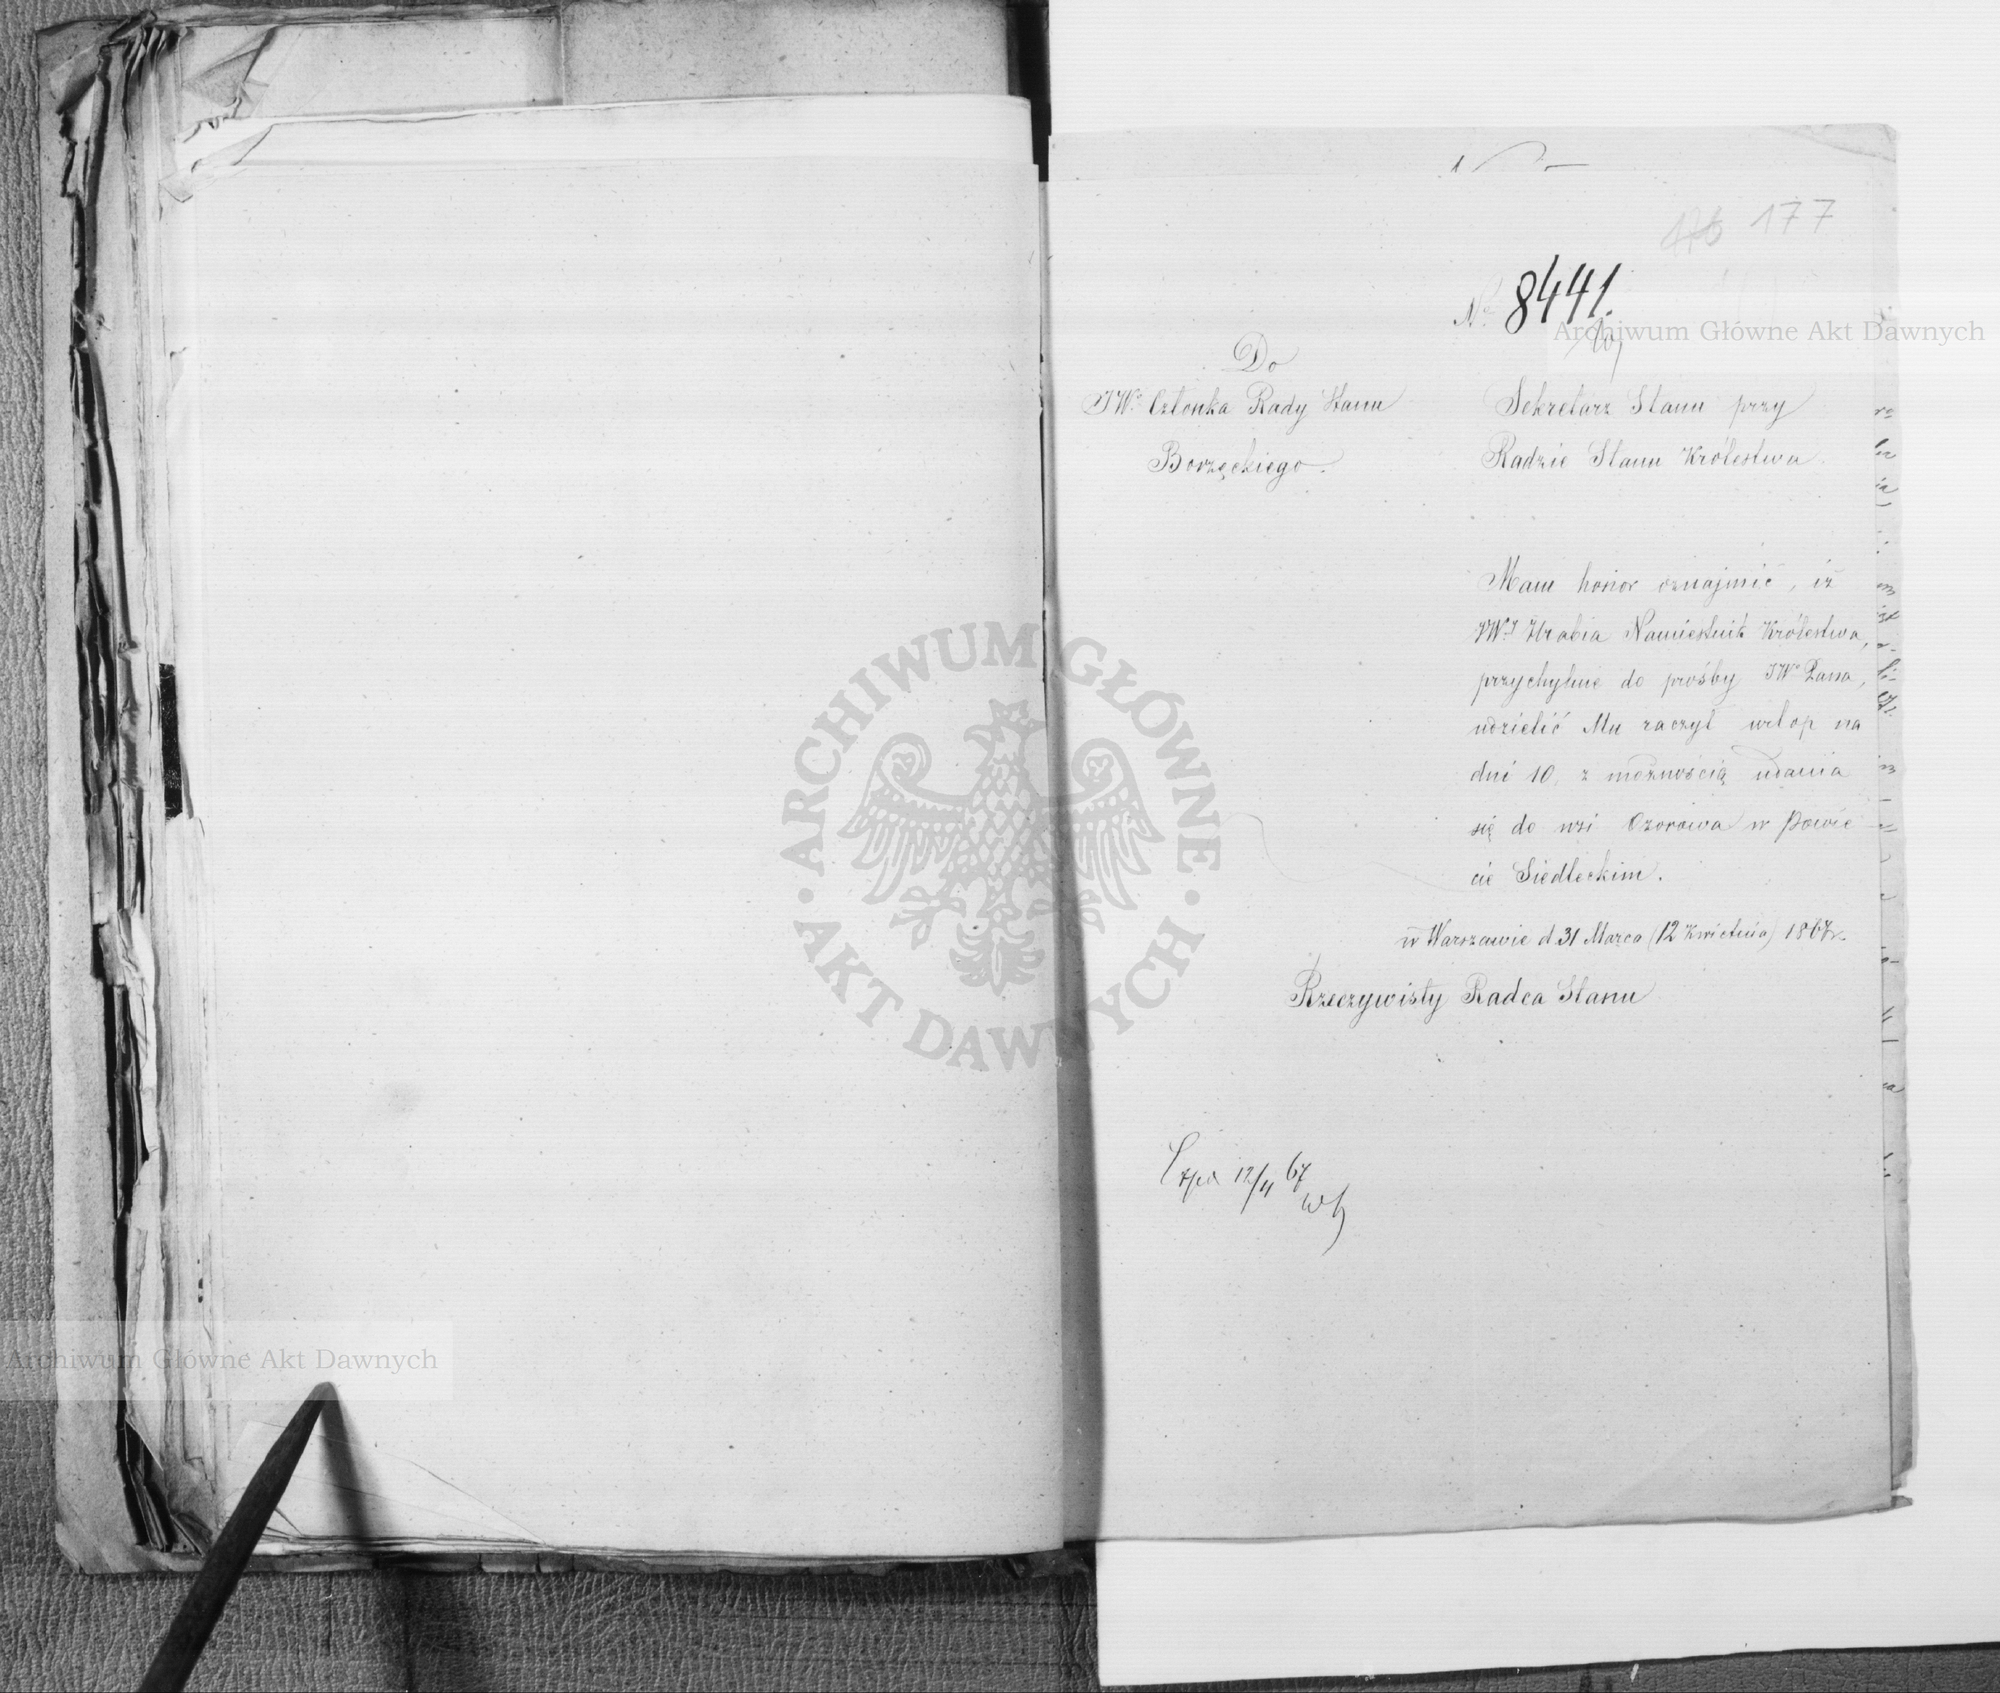 177
No 8441.
Do
JWo Członka Rady Stanu
Borzęckiego.
Sekretarz Stanu przy
Radzie Stanu Królestwa.
Mam honor oznajmić, iż
JWJ Hrabia Namiestnik Królestwa,
przychylnie do prośby JWo Pana,
udzielić Mu raczył urlop na
dni 10, z możnością udania
się do wsi Ozorowa w Powie
cie Siedleckim.
w Warszawie d 31 Marca (12 Kwietnia) 1867 r.
Rzeczywisty Radca Stanu
Exped 12/4 67
Archiwum Główne Akt Dawnych
ARCHIWUM GŁÓWNE AKT DAWNYCH
Archiwum Główne Akt Dawnych